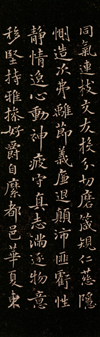 同氣連枝交友投分切磨箴規仁慈隱
惻造次弗離節義廉退顛沛匪虧性
靜情逸心動神疲守真志滿逐物意
移堅持雅操好爵自縻都邑華夏東